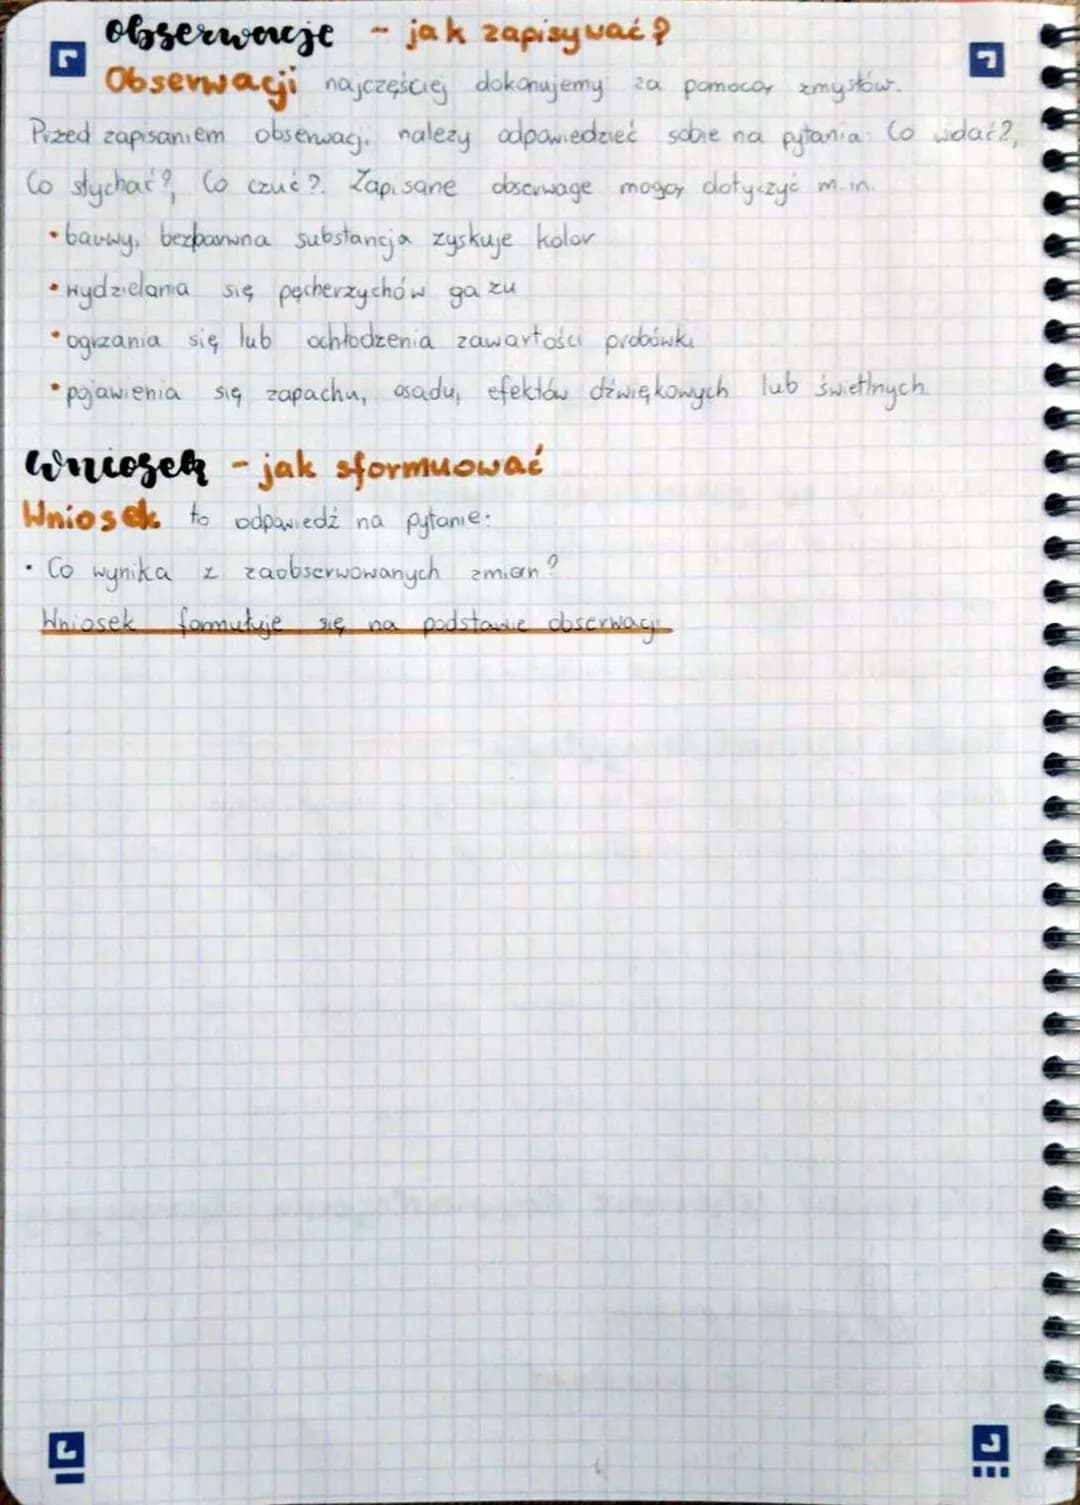 obserwacje - jak zapisywać?
Obserwacji najczęściej dokonujemy za pomocą zmysłów.
Przed zapisaniem obserwacji, należy odpowiedzieć sobie na pytania: Co widać?,
Co słychać?, Co czuć?. Zapisane obserwacje mogą dotyczyć m.in.
• barwy, bezbarwna substancja zyskuje kolor
• wydzielania się pęcherzychów gazu
• ogrzania się lub ochłodzenia zawartości probówki
• pojawienia się zapachu, osadu, efektów dźwiękowych lub świetlnych
wniosek - jak sformuować
Wniosek to odpowiedź na pytanie:
• Co wynika z zaobserwowanych zmian?
Wniosek formułuje się na podstawie obserwacji